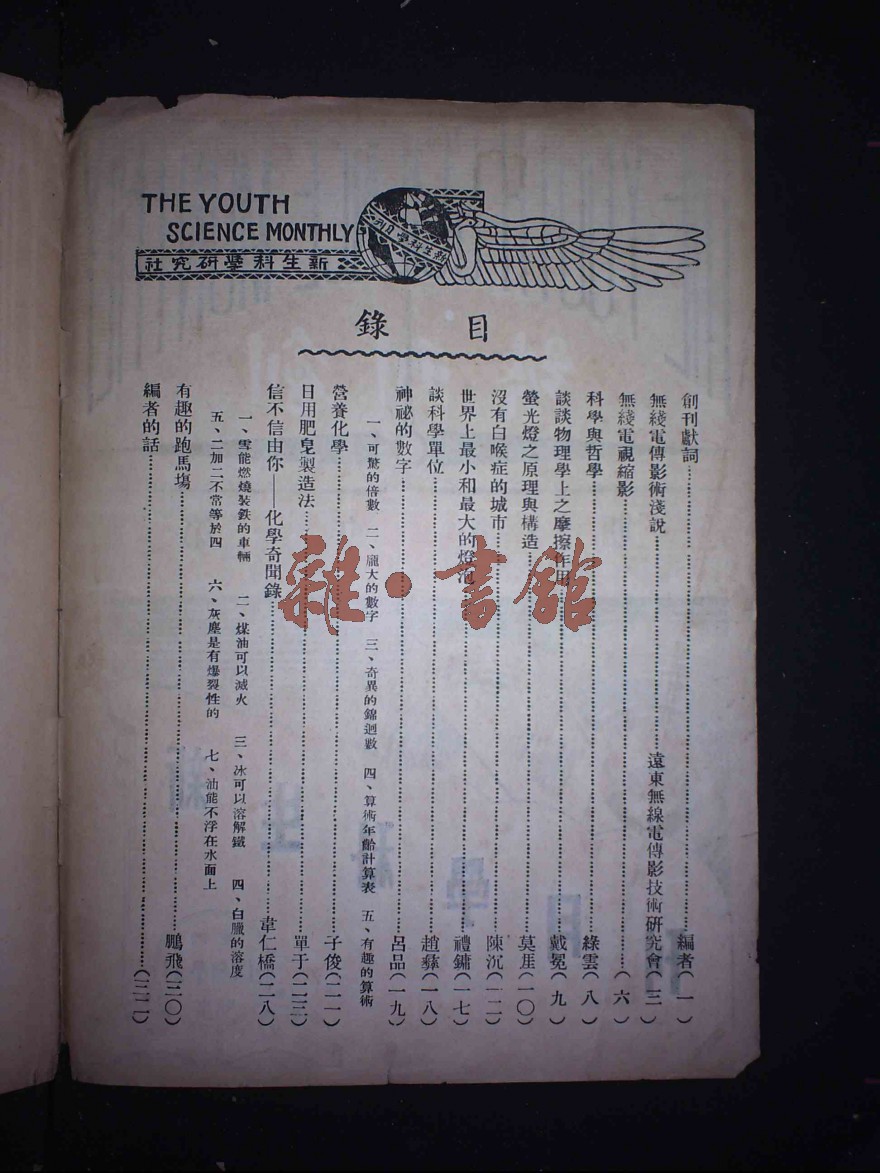 THE YOUTH
SCIENCE MONTHLY
新生科學月刊
新生科學研究社
目錄
創刊獻詞……編者(一)
無綫電傳影術淺說……遠東無線電傳影技術研究會(三)
無綫電視縮影……(六)
科學與哲學……綠雲(八)
談談物理學上之摩擦作用……戴冕(九)
螢光燈之原理與構造……莫厓(一〇)
沒有白喉症的城市……陳沉(一二)
世界上最小和最大的燈泡……禮鏞(一七)
談科學單位……趙彝(一八)
神祕的數字……呂品(一九)
一、可驚的倍數 二、龐大的數字 三、奇異的錦迴數 四、算術年齡計算表 五、有趣的算術
營養化學……子俊(二一)
日用肥皂製造法……單于(二三)
信不信由你——化學奇聞錄……韋仁橋(二八)
一、雪能燃燒裝鉄的車輛 二、煤油可以滅火 三、冰可以溶解鐵 四、白臘的溶度
五、二加二不常等於四 六、灰塵是有爆裂性的 七、油能不浮在水面上
有趣的跑馬塲……鵬飛(三〇)
編者的話……(三二)
雜·書館